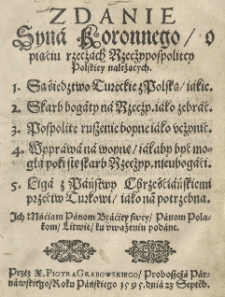 ZDANIE
Syná Koronnego / o
piąciu rzeczách Rzeczypospolitey
Polskiey należących.
1. Sąśiedztwo Tureckie z Polską / iákie.
2. Skarb bogáty ná Rzeczp. iáko zebráć.
3. Pospolite ruszenie hoynie iáko vczynić.
4. Wypráwá ná woynę / iákaby być mo-
głá poki sie skarb Rzeczyp. nieubogáci.
5. Ligá z Páństwy Chrześćiáńskiemi
przećiw Turkowi / iáko ná potrzebna.
Ich Máćiam Pánom Bráciey swey / Pánom Polá-
kom / Litwie / ku vważeniu podáne.
Przez X. PIOTRA GRABOWSKIEGO / Proboszczá Pár-
náwskiego / Roku Páńskiego 1595. dniá 23 Septēb.